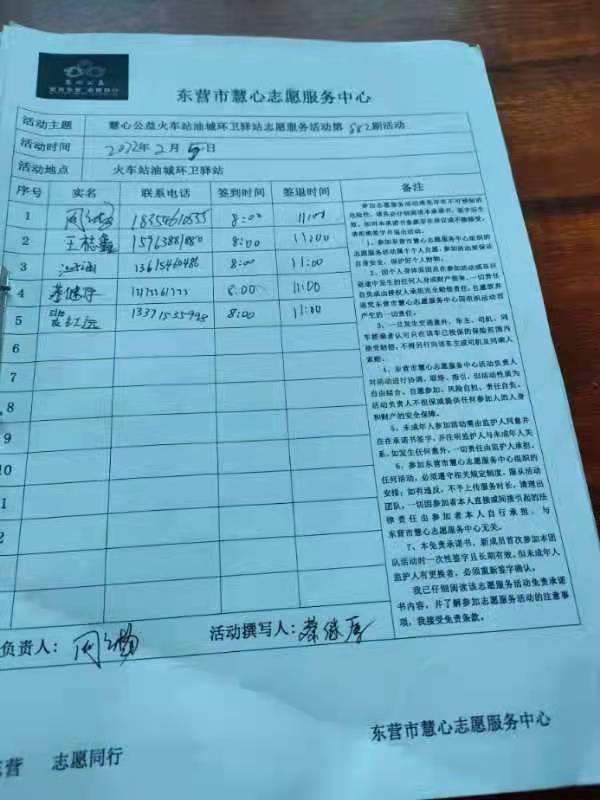 东营市慧心志愿服务中心
活动主题 慧心公益火车站油城环卫驿站志愿服务活动第882期活动
活动时间 2022年2月5日
活动地点 火车站油城环卫驿站
序号 实名 联系电话 签到时间 签退时间 备注
1 8:00 11:00
2 8:00 11:00
3 8:00 11:00
4 8:00 11:00
5 8:00 11:00
6
7
8
9
10
1
2
参加志愿服务活动将存在不可预知的
危险性，请务必仔细阅读本承诺书，签字后生
效。如对本承诺书条款存在异议或不能接受，
请拒绝签字并退出活动。
1、参加东营市慧心志愿服务中心组织的
志愿活动属于个人自愿，参加活动需保证
自身安全，保护好个人财物。
2、因个人身体原因及在参加活动或活动
途中发生的任何人身或财产损失，一切责任
自负或由侵权人承担完全赔偿责任，自愿放弃
追究东营市慧心志愿服务中心因组织活动而
产生的一切责任。
3、一旦发生交通意外，车主、司机、同
车搭乘者认可只在该车已投保的保险范围内
接受赔偿，不得另行向该车主或司机及同乘人
索赔。
4、东营市慧心志愿服务中心活动负责人
对活动进行协调、联络、指引，但活动性质为
自由结合、自愿参加、风险自担、责任自负。
活动负责人不担保或提供任何参加人的人身
和财产的安全保障。
5、未成年人参加活动需由监护人同意并
在在承诺书签字，并注明监护人与未成年人关
系，如发生任何意外，一切责任由监护人承担。
6、参加东营市慧心志愿服务中心组织的
任何活动，必须遵守相关规定制度，服从活动
安排；如有违反，不予上传服务时长，清退出
团队，一切因参加者本人直接或间接引起的法
律责任由参加者本人自行承担，与
东营市慧心志愿服务中心无关。
7、本免责承诺书，新成员首次参加本团
队活动时一次性签字且长期有效，但未成年人
监护人有更换者，必须重新签字确认。
我已仔细阅读该志愿服务活动免责承诺
书内容，并了解参加志愿服务活动的注意事
项，我接受免责条款。
负责人： 活动撰写人：
东营市慧心志愿服务中心
东营 志愿同行